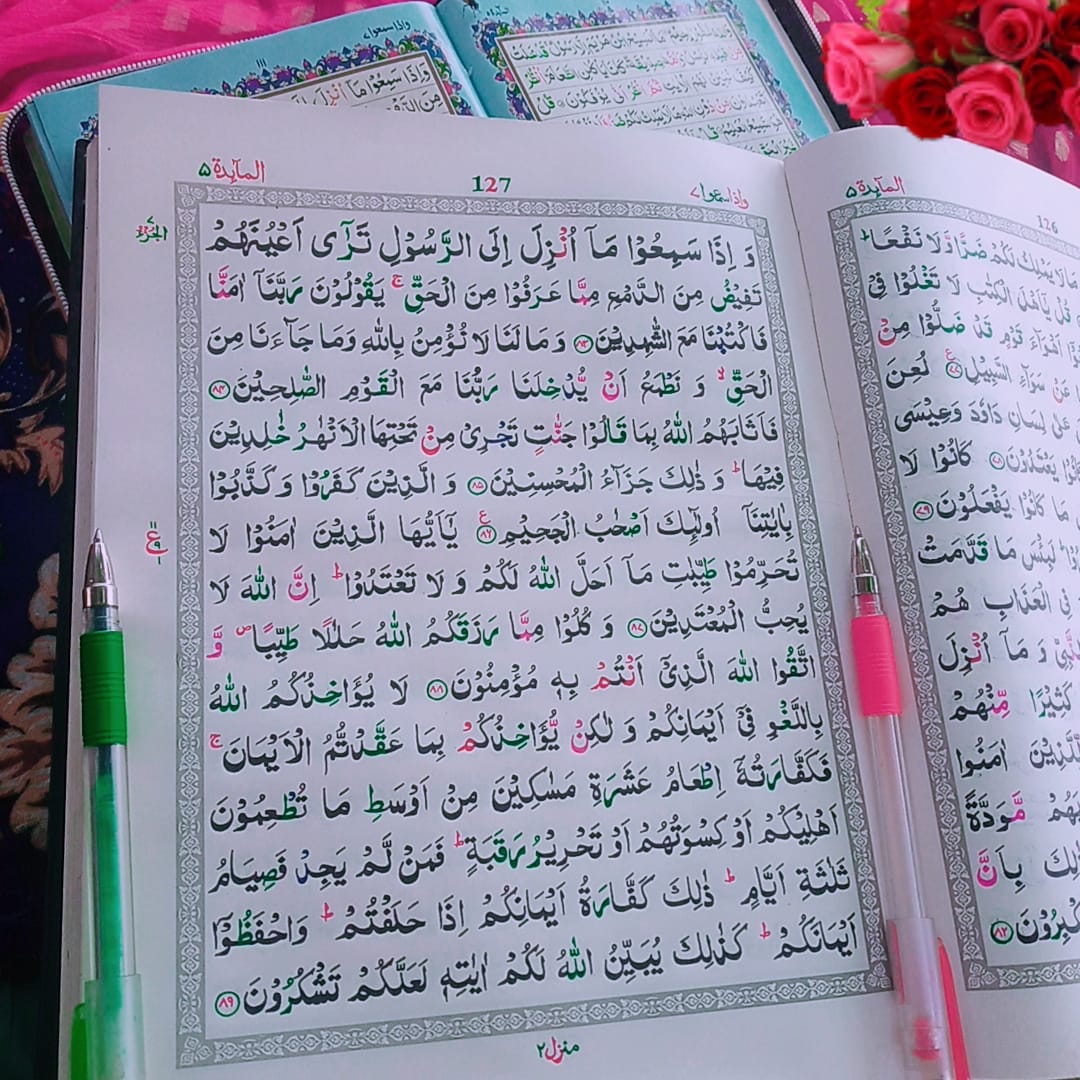 المآئدة ۵
127
واذا سمعوا ۷
وَ اِذَا سَمِعُوْا مَآ اُنْزِلَ اِلَى الرَّسُوْلِ تَرٰۤى اَعْيُنَهُمْ
تَفِيْضُ مِنَ الدَّمْعِ مِمَّا عَرَفُوْا مِنَ الْحَقِّ ۚ يَقُوْلُوْنَ رَبَّنَاۤ اٰمَنَّا
فَاكْتُبْنَا مَعَ الشّٰهِدِيْنَ ۝۸۳ وَ مَا لَنَا لَا نُؤْمِنُ بِاللّٰهِ وَمَا جَآءَنَا مِنَ
الْحَقِّ ۙ وَ نَطْمَعُ اَنْ يُّدْخِلَنَا رَبُّنَا مَعَ الْقَوْمِ الصّٰلِحِيْنَ ۝۸۴
فَاَثَابَهُمُ اللّٰهُ بِمَا قَالُوْا جَنّٰتٍ تَجْرِىْ مِنْ تَحْتِهَا الْاَنْهٰرُ خٰلِدِيْنَ
فِيْهَا ؕ وَ ذٰلِكَ جَزَآءُ الْمُحْسِنِيْنَ ۝۸۵ وَ الَّذِيْنَ كَفَرُوْا وَ كَذَّبُوْا
بِاٰيٰتِنَاۤ اُولٰٓئِكَ اَصْحٰبُ الْجَحِيْمِ ۝۸۶ يٰۤاَيُّهَا الَّذِيْنَ اٰمَنُوْا لَا
تُحَرِّمُوْا طَيِّبٰتِ مَاۤ اَحَلَّ اللّٰهُ لَكُمْ وَ لَا تَعْتَدُوْا ؕ اِنَّ اللّٰهَ لَا
يُحِبُّ الْمُعْتَدِيْنَ ۝۸۷ وَ كُلُوْا مِمَّا رَزَقَكُمُ اللّٰهُ حَلٰلًا طَيِّبًا ۪ وَّ
اتَّقُوا اللّٰهَ الَّذِىْۤ اَنْتُمْ بِهٖ مُؤْمِنُوْنَ ۝۸۸ لَا يُؤَاخِذُكُمُ اللّٰهُ
بِاللَّغْوِ فِىْۤ اَيْمَانِكُمْ وَ لٰكِنْ يُّؤَاخِذُكُمْ بِمَا عَقَّدْتُّمُ الْاَيْمَانَ ۚ
فَكَفَّارَتُهٗۤ اِطْعَامُ عَشَرَةِ مَسٰكِيْنَ مِنْ اَوْسَطِ مَا تُطْعِمُوْنَ
اَهْلِيْكُمْ اَوْ كِسْوَتُهُمْ اَوْ تَحْرِيْرُ رَقَبَةٍ ؕ فَمَنْ لَّمْ يَجِدْ فَصِيَامُ
ثَلٰثَةِ اَيَّامٍ ؕ ذٰلِكَ كَفَّارَةُ اَيْمَانِكُمْ اِذَا حَلَفْتُمْ ؕ وَاحْفَظُوْۤا
اَيْمَانَكُمْ ؕ كَذٰلِكَ يُبَيِّنُ اللّٰهُ لَكُمْ اٰيٰتِهٖ لَعَلَّكُمْ تَشْكُرُوْنَ ۝۸۹
منزل ۲
المآئدة ۵
126
مَا لَا يَمْلِكُ لَكُمْ ضَرًّا وَّ لَا نَفْعًا ؕ
قُلْ يٰۤاَهْلَ الْكِتٰبِ لَا تَغْلُوْا فِىْ
اَهْوَآءَ قَوْمٍ قَدْ ضَلُّوْا مِنْ
عَنْ سَوَآءِ السَّبِيْلِ ۝۷۷ لُعِنَ
عَلٰى لِسَانِ دَاوٗدَ وَعِيْسَى
كَانُوْا يَعْتَدُوْنَ ۝۷۸ كَانُوْا لَا
مَا كَانُوْا يَفْعَلُوْنَ ۝۷۹
لَبِئْسَ مَا قَدَّمَتْ
فِى الْعَذَابِ هُمْ
وَ مَاۤ اُنْزِلَ
كَثِيْرًا مِّنْهُمْ
الَّذِيْنَ اٰمَنُوا
مَّوَدَّةً
بِاَنَّ
۝۸۲